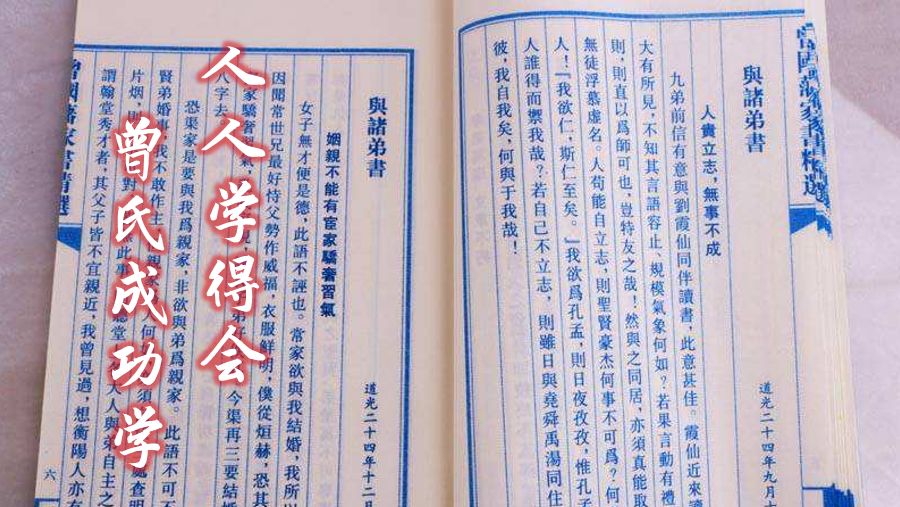 人人学得会
曾氏成功学
曾國藩家書精選
與諸弟書
道光二十四年九月
人貴立志，無事不成
九弟前信有意與劉霞仙同伴讀書，此意甚佳。霞仙近來讀
大有所見，不知其言語容止、規模氣象何如？若果言動有禮
則，則直以爲師可也，豈特友之哉！然與之同居，亦須真能取
無徒浮慕虛名。人苟能自立志，則聖賢豪杰何事不可爲？何
人！『我欲仁，斯仁至矣。』我欲爲孔孟，則日夜孜孜，惟孔
人誰得而禦我哉？若自己不立志，則雖日與堯舜禹湯同住
彼，我自我矣，何與于我哉！
與諸弟書
道光二十四年十二
姻親不能有宦家驕奢習氣
女子無才便是德，此語不誣也。常家欲與我結婚，我所
因聞常世兄最好恃父勢作威福，衣服鮮明，僕從烜赫，恐其
家驕奢
八字去
今渠再三要結
恐渠家是要與我爲親家，非欲與弟爲親家。此語不可不
賢弟婚事，我不敢作主，親家
何須
片烟，則
對
此事
聽堂
大人與弟自主之
處查明
謂翰堂秀才者，其父子皆不宜親近，我曾見過，想衡陽人亦有
曾國藩家書精選
六